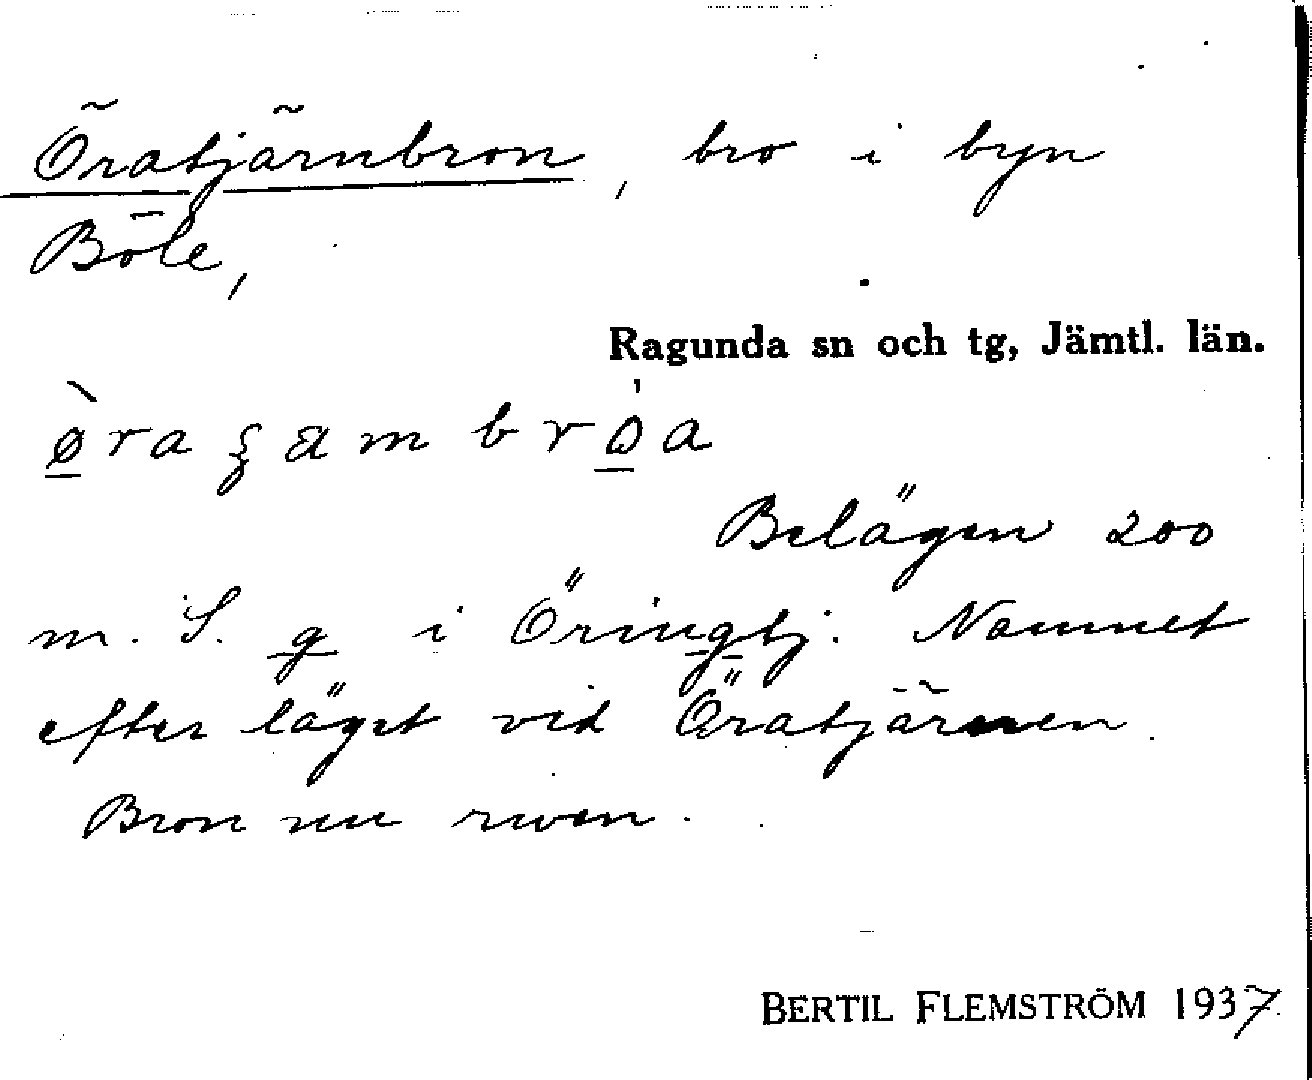 Öratjärnbron, bro i byn
Böle,
Ragunda sn och tg, Jämtl. län.
Belägen 200
m. S. g i Öringtj. Namnet
efter läget vid Öratjärnen.
Bron nu riven.
BERTIL FLEMSTRÖM 1937